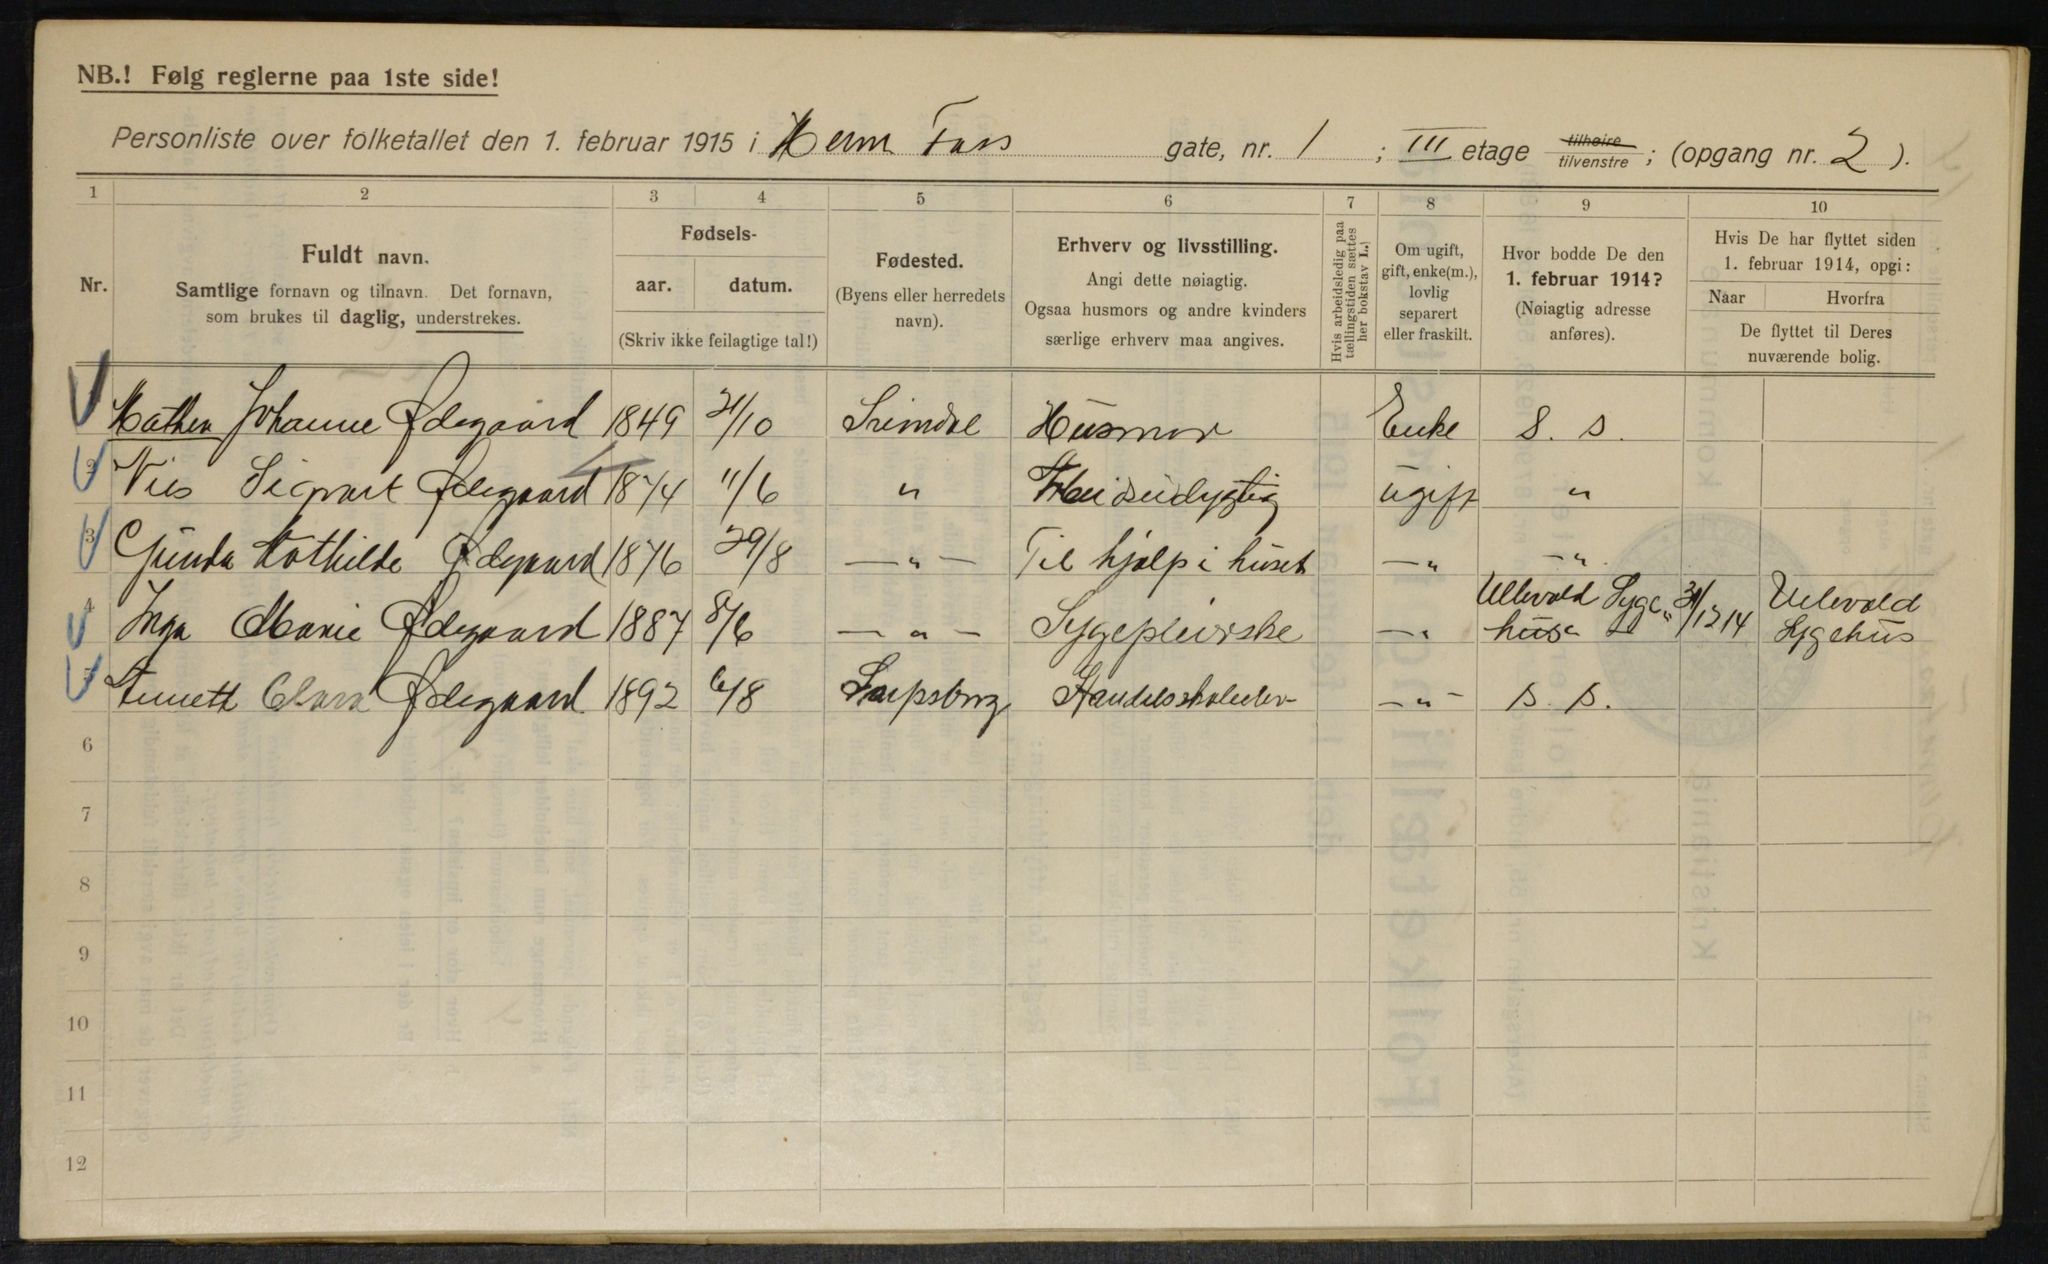 NB.! Følg reglerne paa 1ste side!
Personliste over folketallet den 1. februar 1915 i Herm Foss gate, nr. 1 ; III etage tilhøire tilvenstre ; (opgang nr. 2 ).
1 2 3 4 5 6 7 8 9 10
Nr.
Fuldt navn.
Samtlige fornavn og tilnavn. Det fornavn,
som brukes til daglig, understrekes.
Fødsels-
aar. datum.
(Skriv ikke feilagtige tal!)
Fødested.
(Byens eller herredets
navn).
Erhverv og livsstilling.
Angi dette nøiagtig.
Ogsaa husmors og andre kvinders
særlige erhverv maa angives.
Hvis arbeidsledig paa
tællingstiden sættes
her bokstav L.
Om ugift,
gift, enke(m.),
lovlig
separert
eller fraskilt.
Hvor bodde De den
1. februar 1914?
(Nøiagtig adresse
anføres).
Hvis De har flyttet siden
1. februar 1914, opgi:
Naar Hvorfra
De flyttet til Deres
nuværende bolig.
Mathea Johanne Ødegaard 1849 21/10 Husmor Enke S. S.
2 Nils Sigvart Ødegaard 1874 11/6 " Arbeidsudygtig ugift "
3 Gunda Mathilde Ødegaard 1876 29/8 — " — Til hjælp i huset — " — "
4 Inga Marie Ødegaard 1887 8/6 — " — Sygepleierske — " Ullevold Syge" hus 31/12 14 Ullevold Sygehus
5 Annette Clara Ødegaard 1892 6/8 Sarpsborg Handelsskoleelev — " — S. S.
6
7
8
9
10
11
12